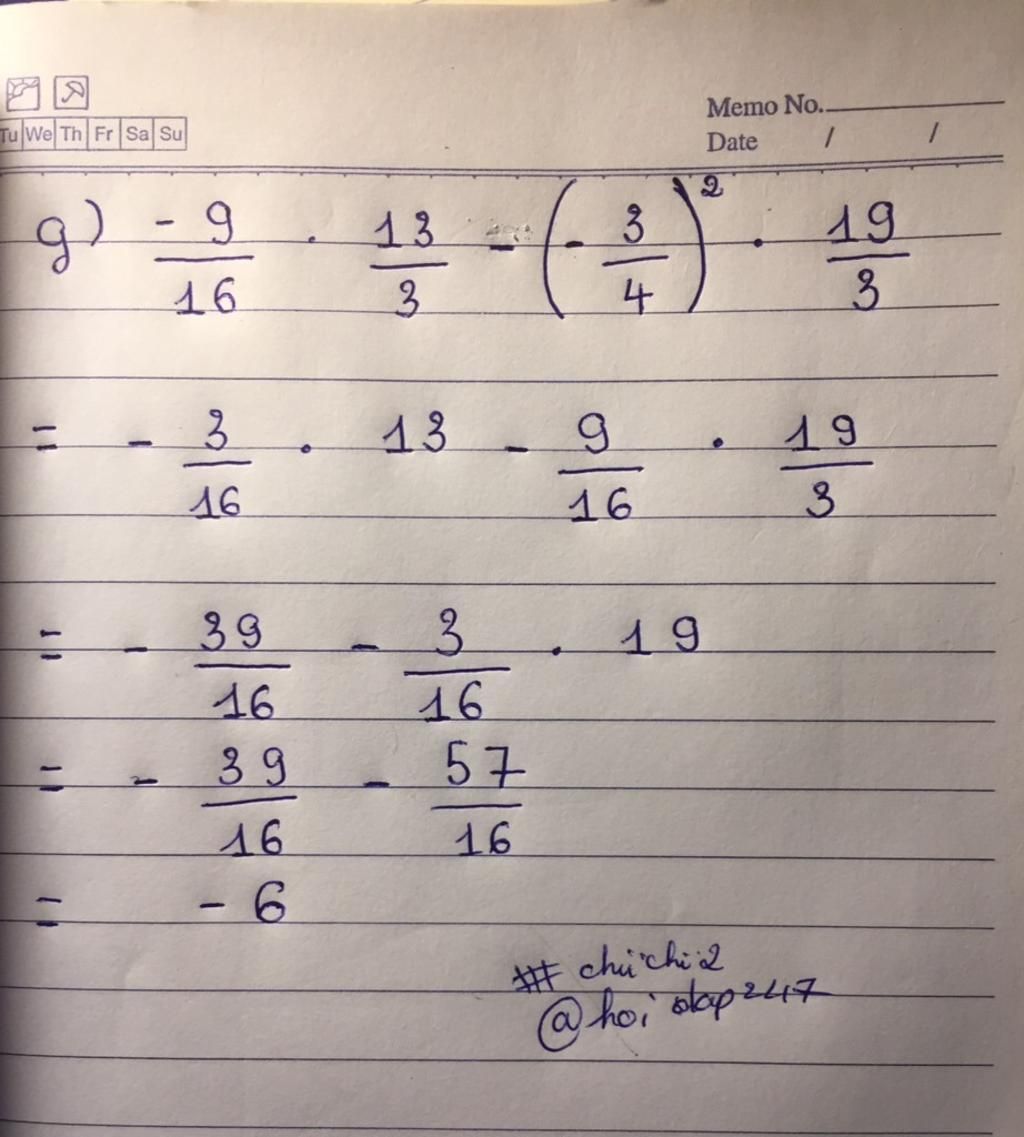 Memo No.
Tu We Th Fr Sa Su
Date / /
g) -9/16 . 13/3 - (-3/4)² . 19/3
= -3/16 . 13 - 9/16 . 19/3
= -39/16 - 3/16 . 19
= -39/16 - 57/16
= -6
# chuchi2
@hoidap247